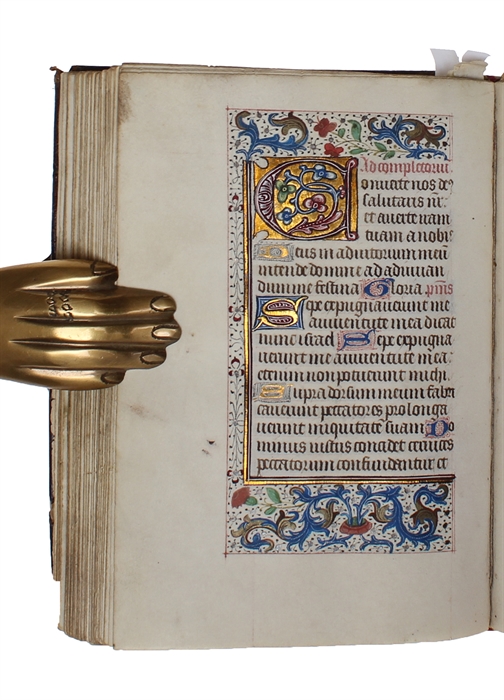 Ad completorium
Conuerte nos de9
salutaris nr.
et auerte iram
tuam a nobis
Deus in adiutorium meum
intende domine ad adiuuan
dum me festina Gloria pris
Sepe expugnauerunt me
a iuuentute mea dicat
nunc israel Sepe expugna
uerunt me a iuuentute mea.
etenim non potuerunt michi
Supra dorsum meum fabri
cauerunt peccatores prolonga
uerunt iniquitatem suam Do
minus iustus concidet ceruices
peccatorum confundentur et